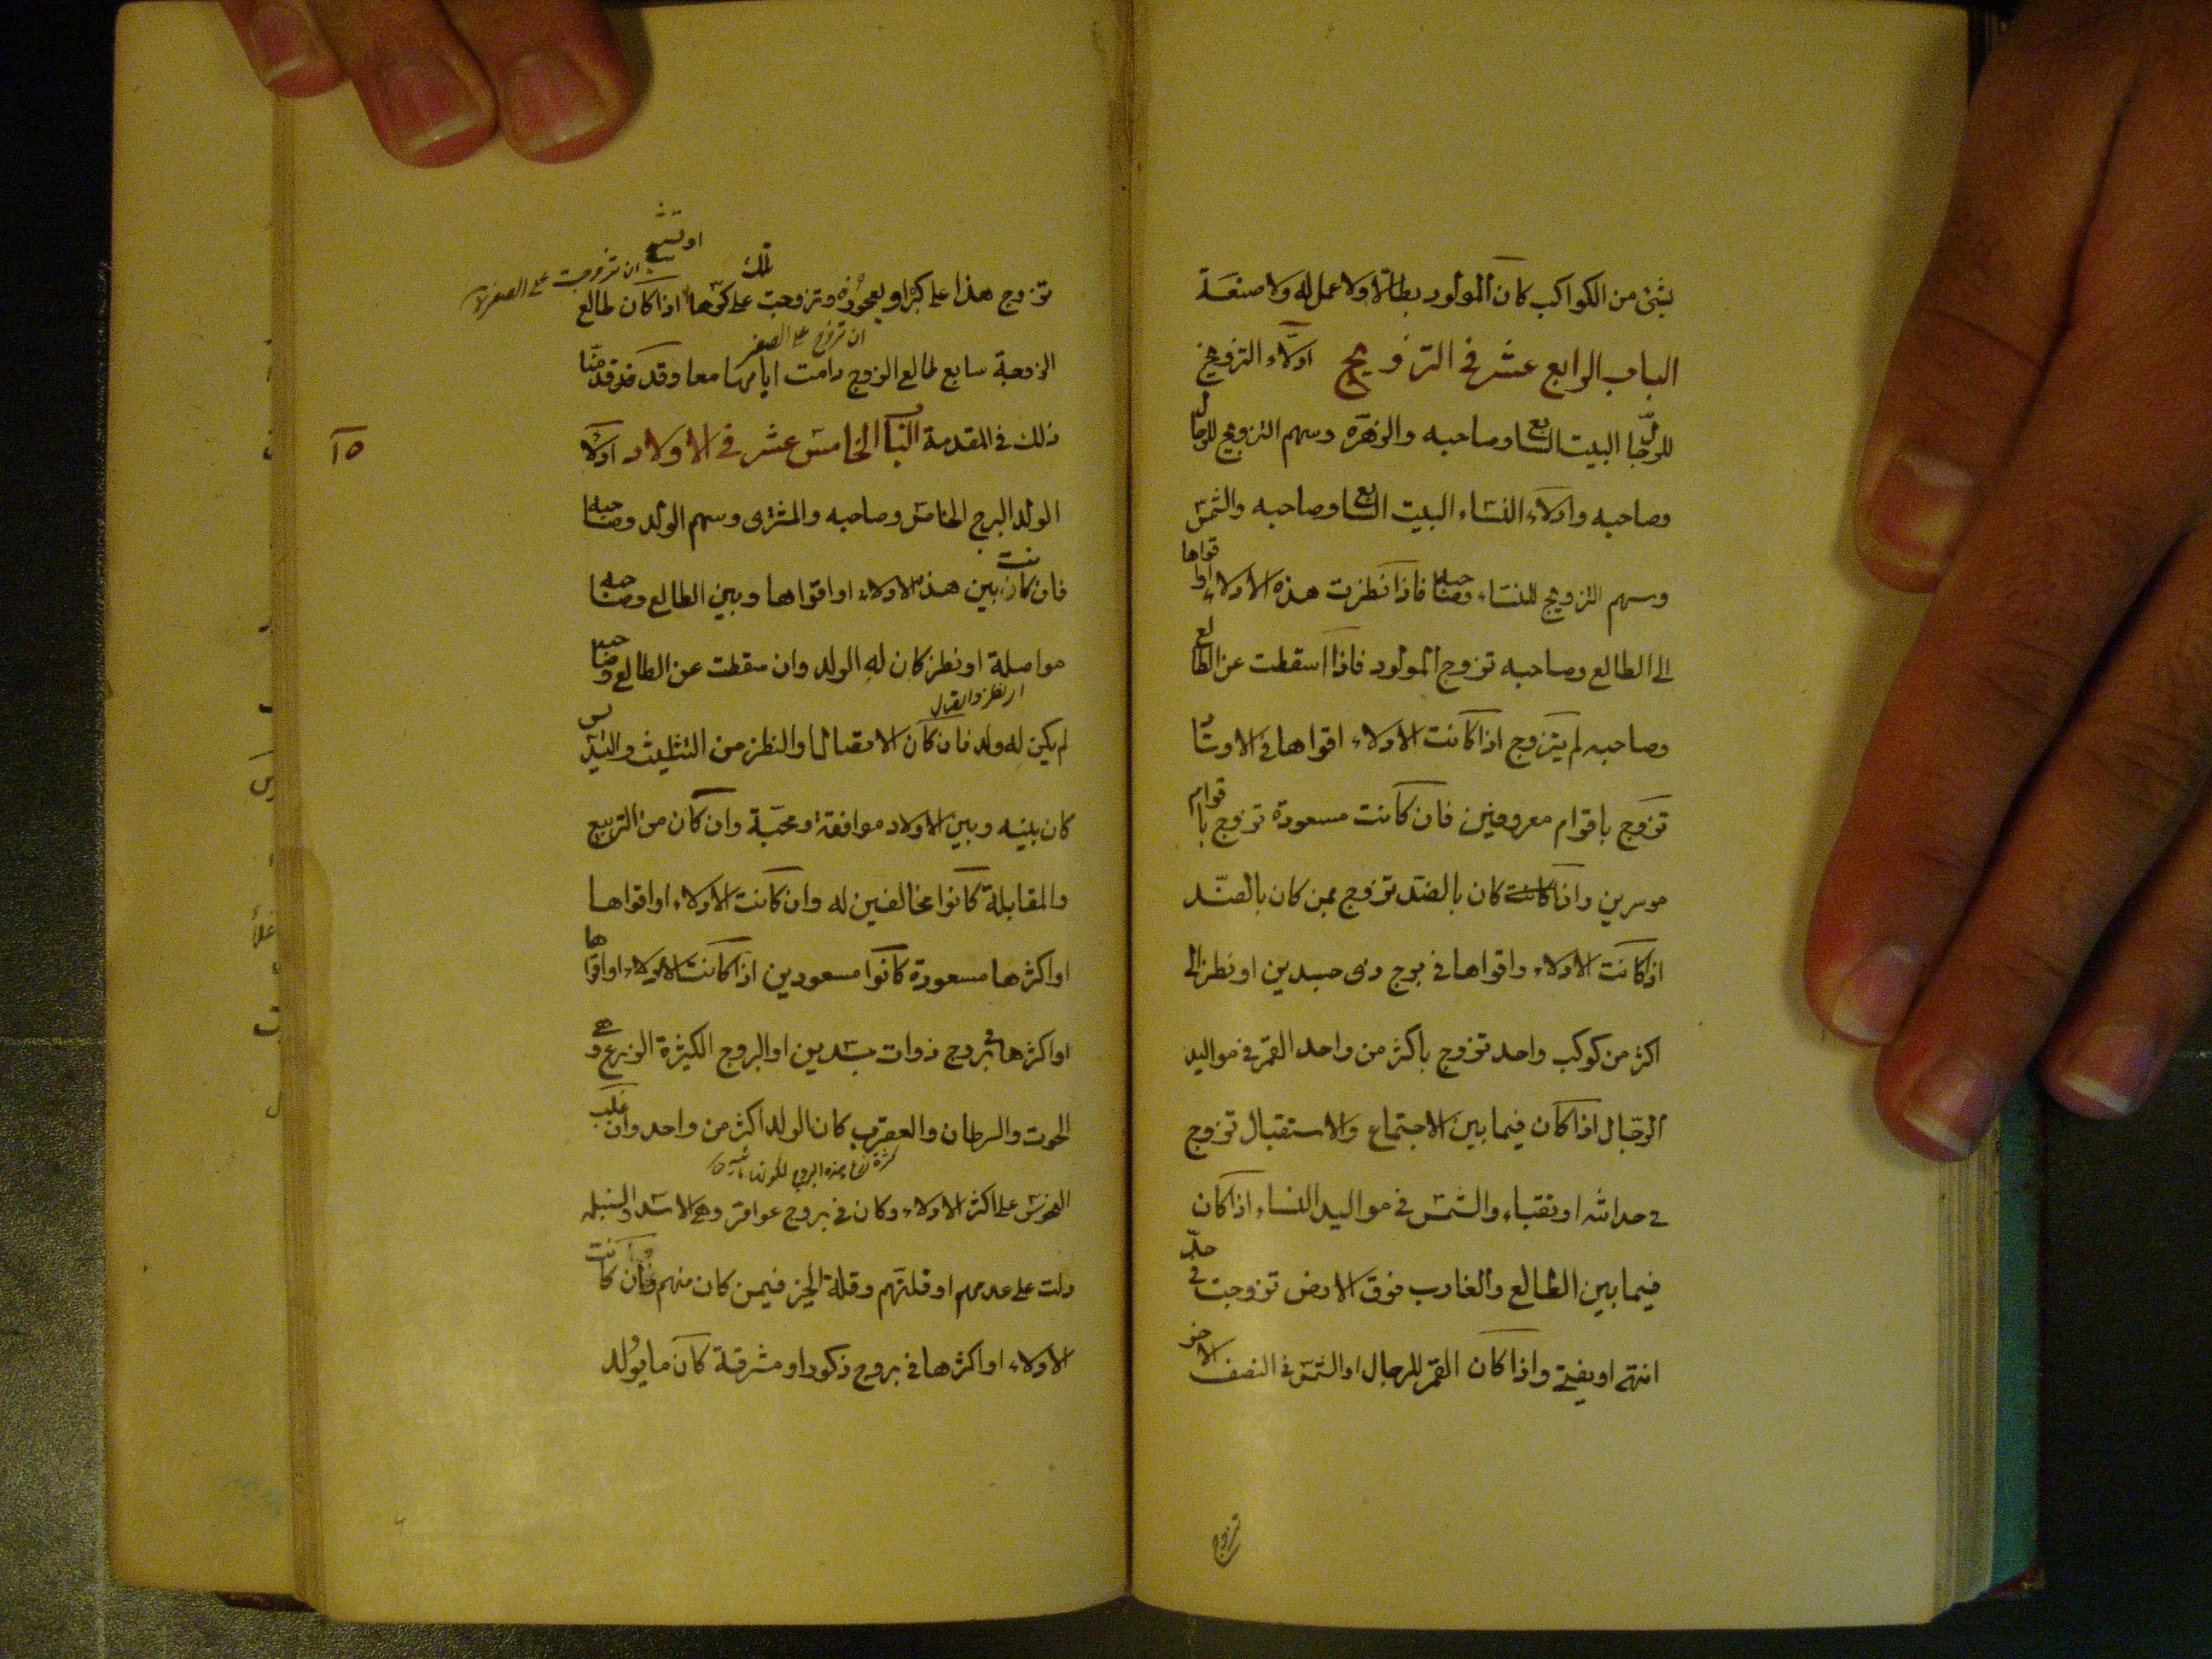 بشئ من الكواكب كان المولود بطالا ولا عمل له ولا صنعة
الباب الرابع عشر في التزويج ادلاء التزويج
للرجال البيت السابع وصاحبه والزهرة وسهم التزويج للرجال
وصاحبه وادلاء النساء البيت السابع وصاحبه والشمس
وسهم التزويج للنساء وصاحبه فاذا نظرت هذه الادلاء او اقواها
الى الطالع وصاحبه تزوج المولود فاذا سقطت عن الطالع
وصاحبه لم يتزوج اذا كانت الادلاء اقواها في الاوتاد
تزوج باقوام معروفين فان كانت مسعودة تزوج باقوام
موسرين واذا كان بالضد تزوج بمن كان بالضد
اذا كانت الادلاء واقواها في برج ذى جسدين او نظر الى
اكثر من كوكب واحد تزوج باكثر من واحد القمر في مواليد
الرجال اذا كان فيما بين الاجتماع والاستقبال تزوج
في حداثته او والشمس في مواليد النساء اذا كان
فيما بين الطالع والغارب فوق الارض تزوجت في
واذا كان القمر للرجال او الشمس في النصف الاخر
تزوج
او
ان تزوجت على الصغر
تزوج هذا على كبر او بعجوزة وتزوجت تلك على كبرها اذا كان طالع
ان تزوج على الصغر
الزوجة سابع طالع الزوج دامت ايامهما معا وقد قدمنا
ذلك في المقدمة الباب الخامس عشر في الاولاد ادلاء
١٥
الولد البرج الخامس وصاحبه والمشترى وسهم الولد وصاحبه
فان كانت بين هذه الادلاء او اقواها وبين الطالع وصاحبه
مواصلة او نظر كان له الولد وان سقطت عن الطالع وصاحبه
لم يكن له ولد فان كان الاتصال والنظر من التثليث والتسديس
كان بينه وبين الاولاد موافقة ومحبة وان كان من التربيع
والمقابلة كانوا مخالفين له وان كانت الادلاء او اقواها
او اكثرها مسعودة كانوا مسعودين اذا كانت الادلاء او اقواها
او اكثرها في بروج ذوات جسدين او البروج الكثيرة الزرع وهي
الحوت والسرطان والعقرب كان الولد اكثر من واحد وان غلب
النحوس على اكثر الادلاء وكان في بروج عواقر وهي الاسد والسنبله
دلت على عدمهم او قلتهم وقلة الخير فيمن كان منهم وان كانت
الادلاء او اكثرها في بروج ذكور او مشرقية كان ما يولد